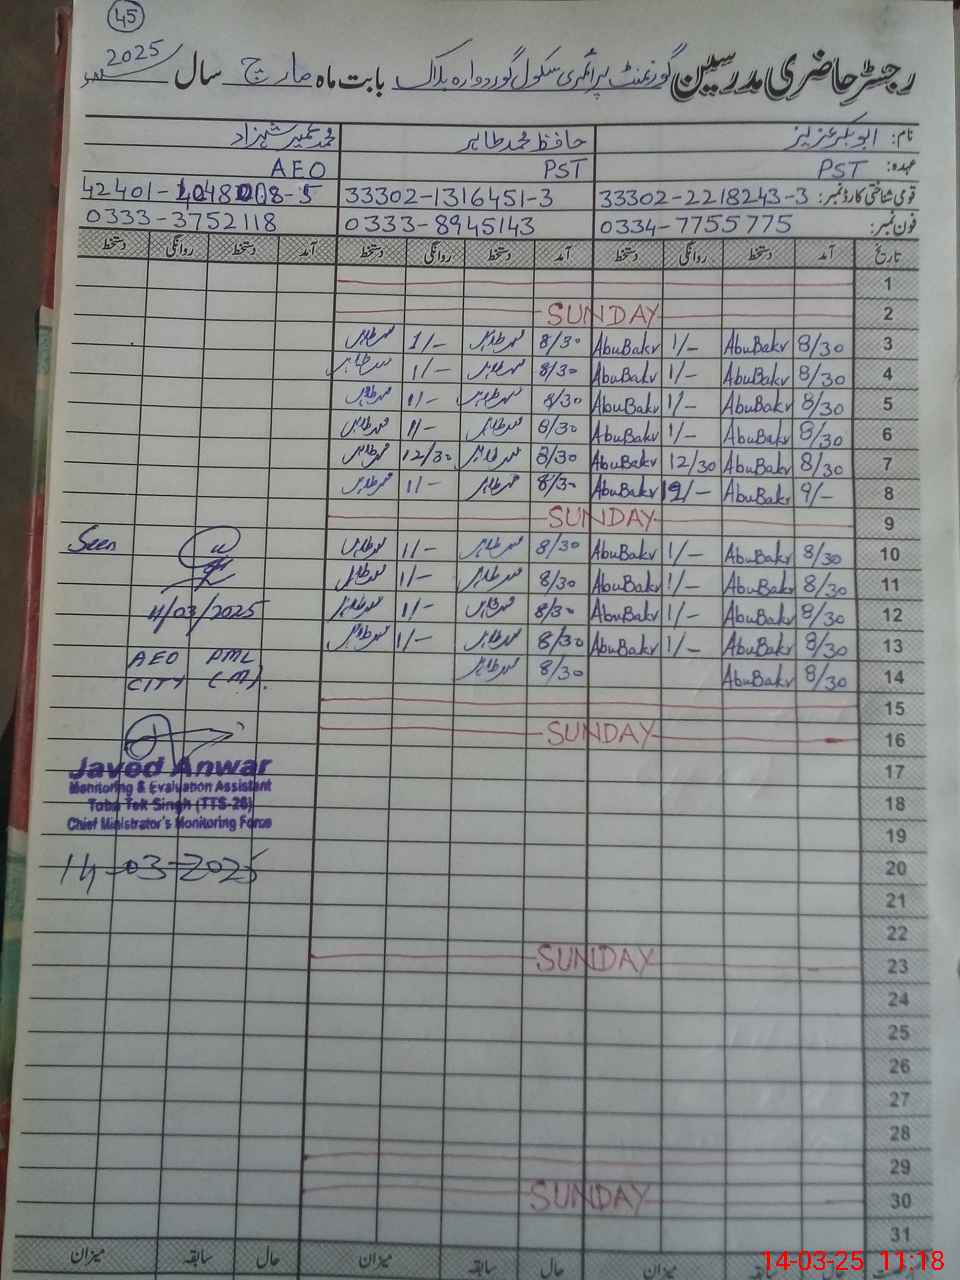 45
رجسٹر حاضری مدرسین گورنمنٹ پرائمری سکول گوردوارہ بلاک بابت ماہ مارچ سال 2025
نام: ابوبکر عزیز حافظ محمد طاہر محمد عمیر شہزاد
عہدہ: PST PST AEO
قومی شناختی کارڈ نمبر: 33302-2218243-3 33302-1316451-3
فون نمبر: 0334-7755775 0333-8945143 0333-3752118
تاریخ آمد دستخط روانگی دستخط آمد دستخط روانگی دستخط آمد دستخط روانگی دستخط
1
2 SUNDAY
3 8/30 AbuBakr 1/- AbuBakr 8/30 محمد طاہر 1/- محمد طاہر
4 8/30 AbuBakr 1/- AbuBakr 8/30 محمد طاہر 1/- محمد طاہر
5 8/30 AbuBakr 1/- AbuBakr 8/30 محمد طاہر 1/- محمد طاہر
6 8/30 AbuBakr 1/- AbuBakr 8/30 محمد طاہر 1/- محمد طاہر
7 8/30 AbuBakr 12/30 AbuBakr 8/30 محمد طاہر 12/30 محمد طاہر
8 9/- AbuBakr AbuBakr 8/30 محمد طاہر 1/- محمد طاہر
9 SUNDAY
10 8/30 AbuBakr 1/- AbuBakr 8/30 محمد طاہر 1/- محمد طاہر Seen
11 8/30 AbuBakr 1/- AbuBakr 8/30 محمد طاہر 1/- محمد طاہر
12 8/30 AbuBakr 1/- AbuBakr 8/30 محمد طاہر 1/- محمد طاہر 11/03/2025
13 8/30 AbuBakr 1/- AbuBakr 8/30 محمد طاہر 1/- محمد طاہر AEO PML
14 8/30 AbuBakr 8/30 محمد طاہر CITY (M).
15
16 SUNDAY
17 Javed Anwar
Monitoring & Evaluation Assistant
18 Toba Tek Singh (TTS-26)
Chief Ministrator's Monitoring Force
19
20 14-03-2025
21
22
23 SUNDAY
24
25
26
27
28
29
30 SUNDAY
31
حال سابقہ میزان حال سابقہ میزان
14-03-25 11:18